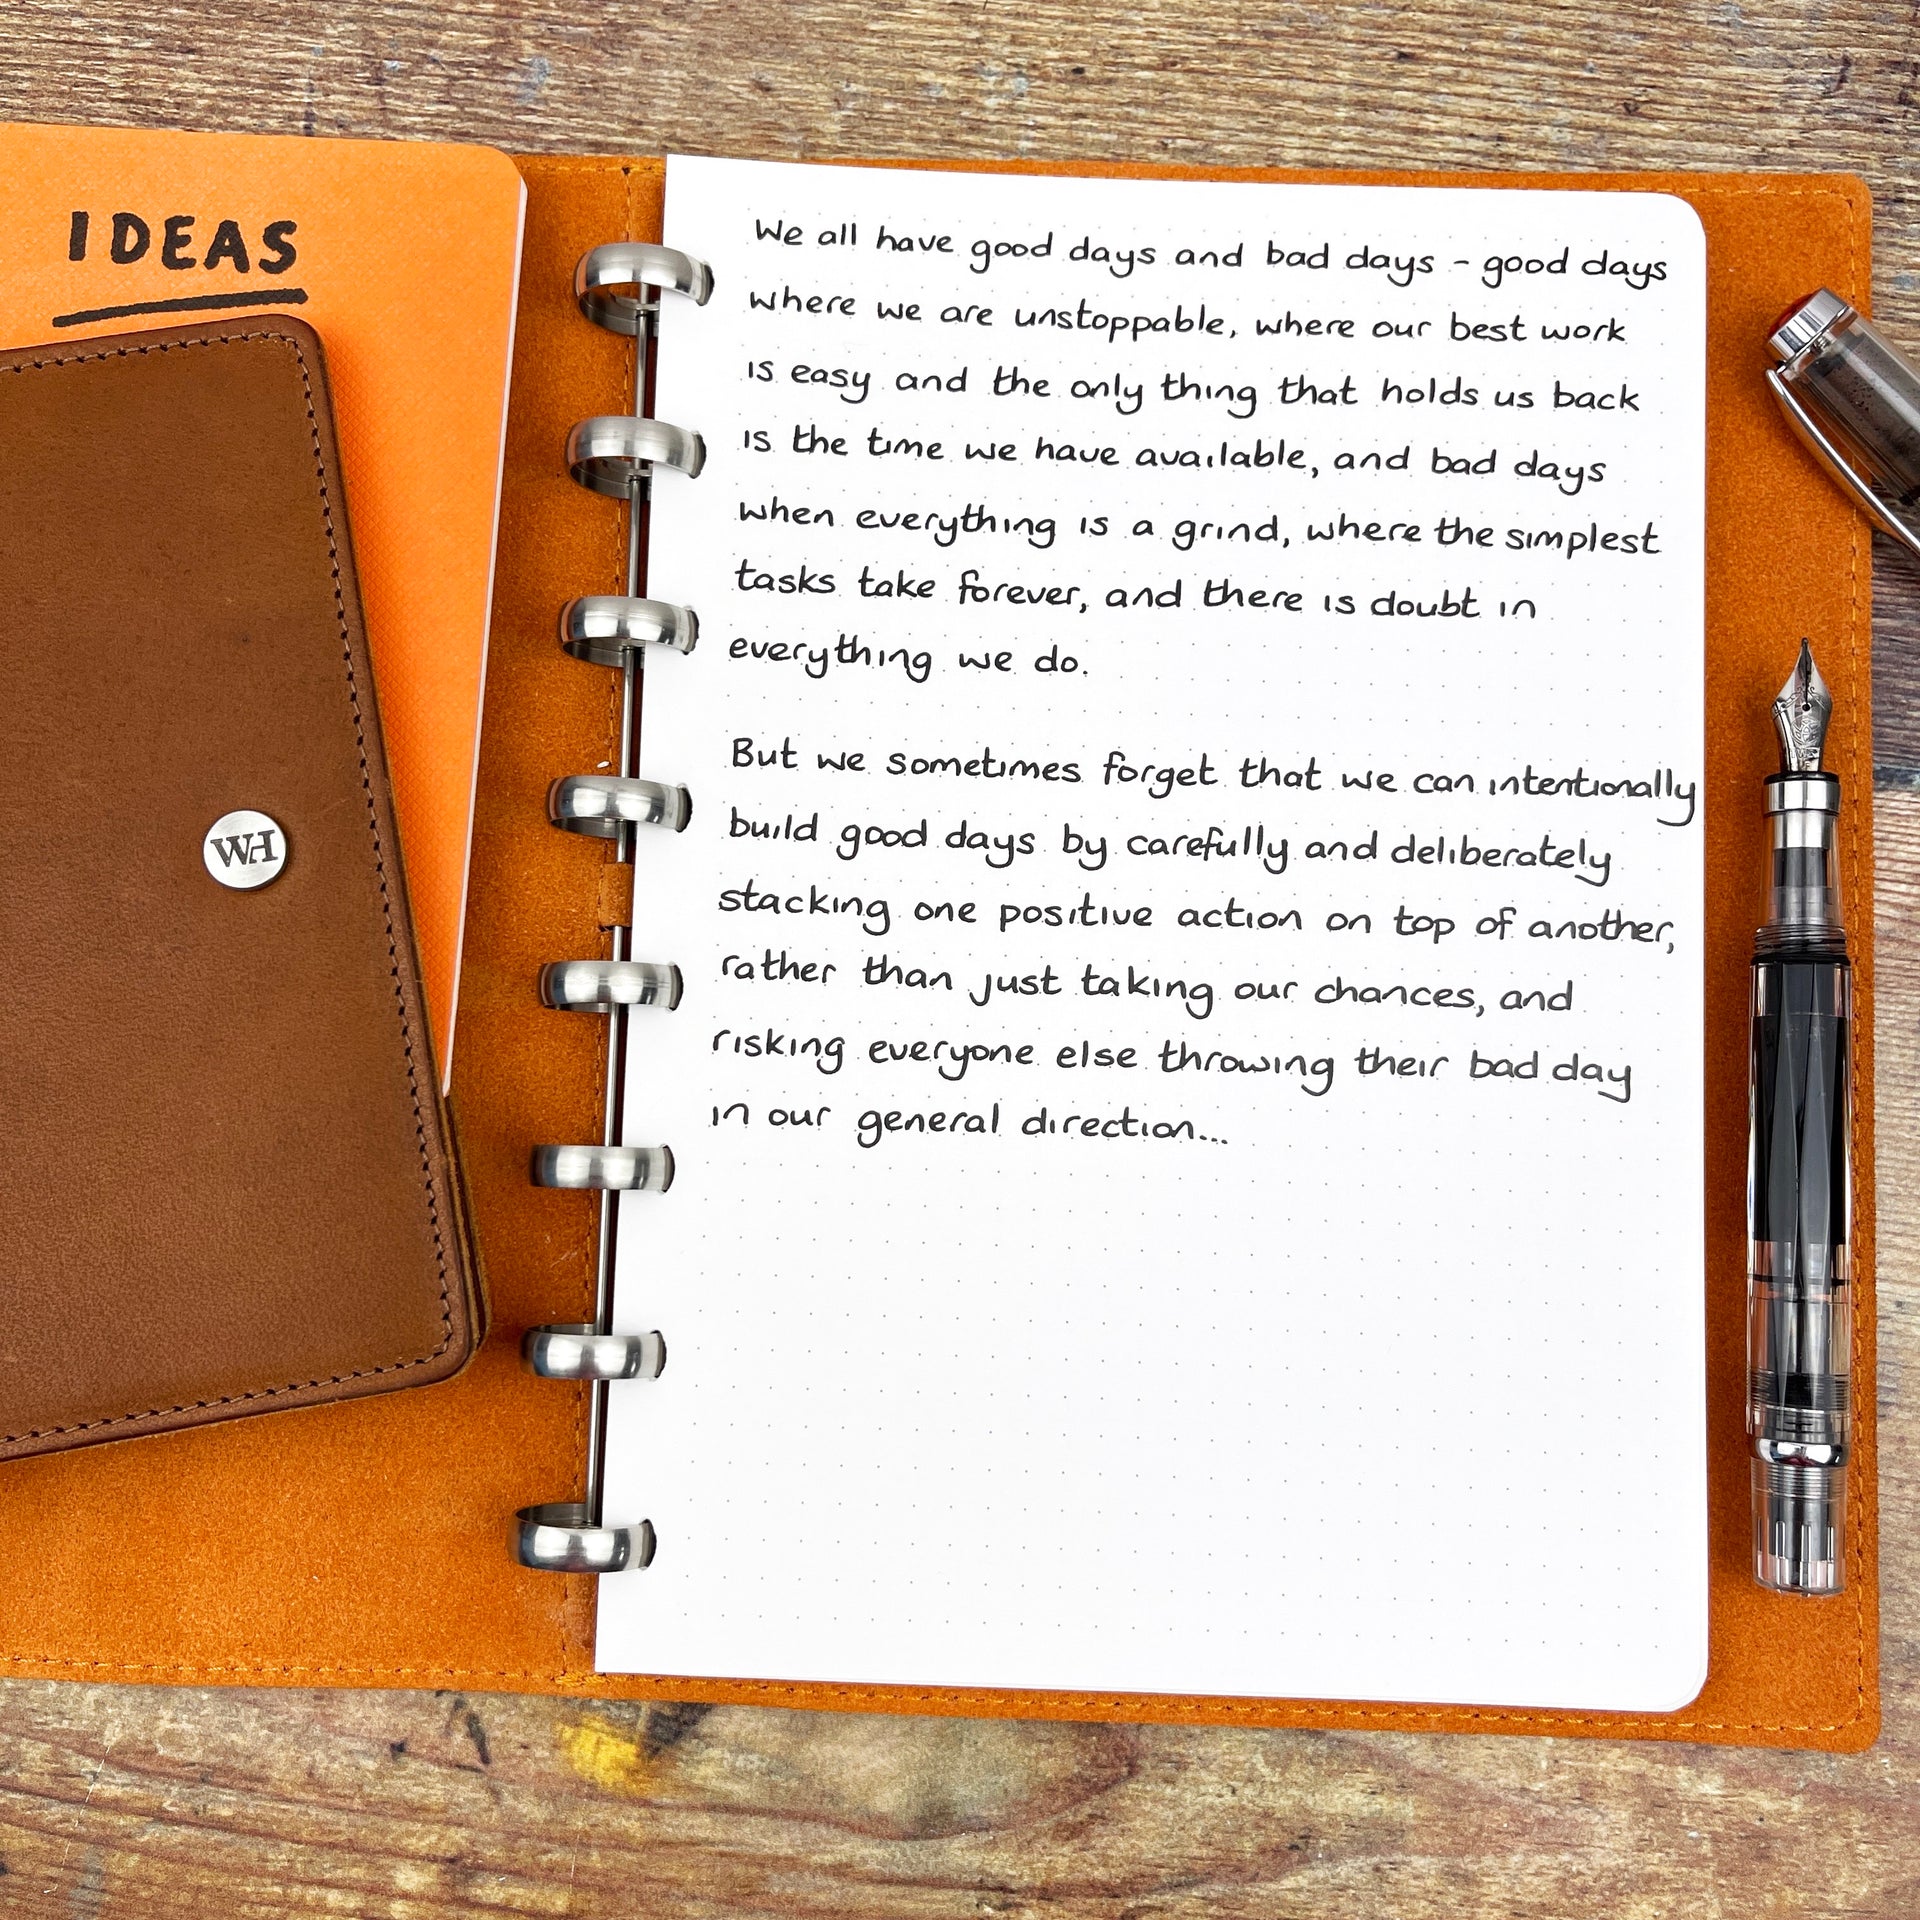 IDEAS
WH
We all have good days and bad days - good days
where we are unstoppable, where our best work
is easy and the only thing that holds us back
is the time we have available, and bad days
when everything is a grind, where the simplest
tasks take forever, and there is doubt in
everything we do.
But we sometimes forget that we can intentionally
build good days by carefully and deliberately
stacking one positive action on top of another,
rather than just taking our chances, and
risking everyone else throwing their bad day
in our general direction...